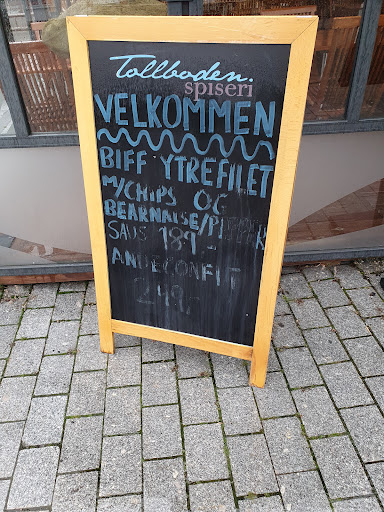 Tollboden.
spiseri
VELKOMMEN
BIFF YTREFILET
M/CHIPS OG
BEARNAISE/PEPPER
SAUS 189,-
ANDECONFIT
249,-